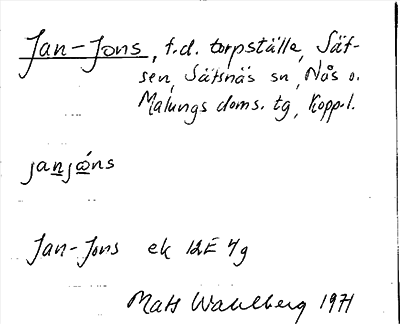 Jan-Jons, f.d. torpställe, Sät-
sen, Sätsnäs sn, Nås o.
Malungs doms. tg, Kopp.l.
janjóns
Jan-Jons ek 12E 7g
Mats Wahlberg 1971